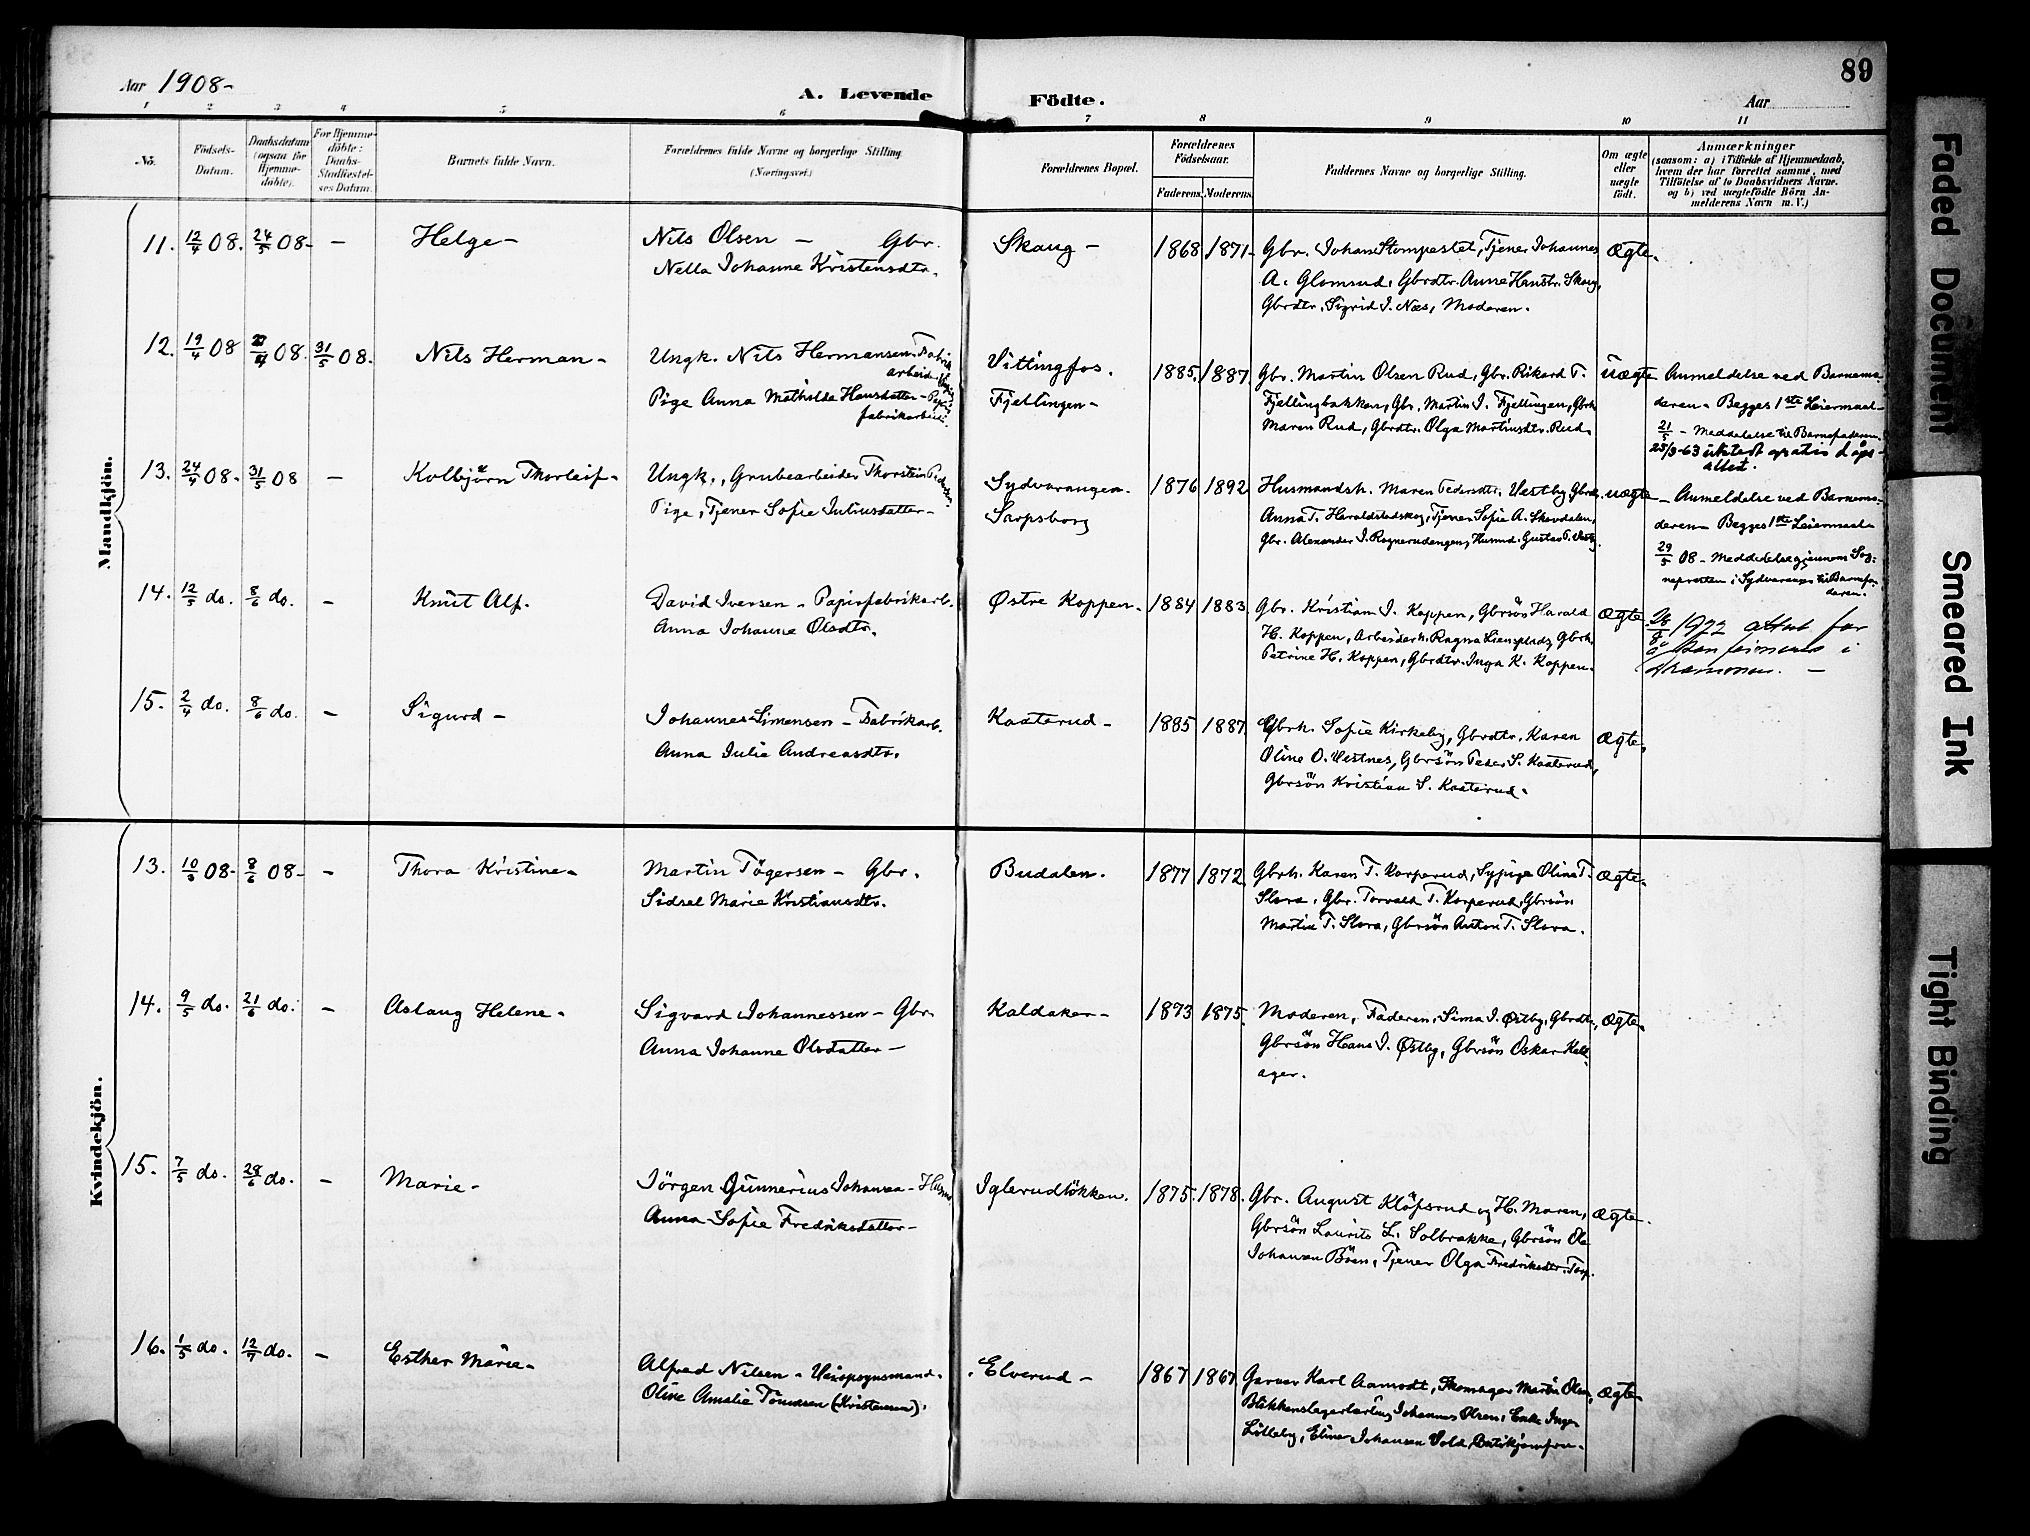 89
Aar 1908-
A. Levende
Födte.
Aar
1 2 3 4 5 6 7 8 9 10 11
No.
Födsels-
Datum.
Daabsdatum
(ogsaa for
Hjemme-
döbte).
For Hjemme-
döbte:
Daabs-
Stadfæstel-
ses Datum.
Barnets fulde Navn.
Forældrenes fulde Navne og borgerlige Stilling.
(Næringsvei.)
Forældrenes Bopæl.
Forældrenes
Födselsaar.
Faderens.
Moderens.
Faddernes Navne og borgerlige Stilling.
Om ægte
eller
uægte
födt.
Anmærkninger
(saasom: a) i Tilfælde af Hjemmedaab,
hvem der har forrettet samme, med
Tilföielse af to Daabsvidners Navne.
og b) ved uægtefödte Börn An-
melderens Navn m. V.)
Mandkjön.
11. 12/4 08. 24/5 08- - Helge- Nils Olsen - Gbr. Skaug - 1868 1871- Gbr. Johan Stompestet, Tjener Johannes Ægte.
Nella Johanne Kristensdtr. A. Glomsrud, Gbrdtr. Anne Hanstr. Skaug,
Gbrdtr. Sigrid J. Næs, Moderen.
12. 19/4 08 08. 31/5 08. Nils Herman- Ungk. Nils Hermansen- Fabrik
arbeider Vittingfos. 1885. 1887 Gbr. Martin Olsen Rud, Gbr. Rikard T. Uægte Anmeldelse ved Barnemo-
Pige Anna Mathilde Hansdatter- Papir
fabrikarbeid. Fjellingen- Fjellingbakken, Gbr. Martin J. Fjellingen, Gbrk. deren- Begges 1ste Leiermaal-
Maren Rud, Gbrdtr. Olga Martinsdtr. Rud. 21/5 - Meddelelse til Barnefaderen.
25/9-63 utstedt gratis dåps-
attest.
13. 24/4 08- 31/5 08 - Kolbjörn Thorleif- Ungk., Grubearbeider Thorstein Pedersen Sydvaranger. 1876 1892 Husmandsk. Maren Pedersdtr. Vestby, Gbrdtr. uægte- Anmeldelse ved Barnemo-
Pige, Tjener Sofie Juliusdatter- Sarpsborg Anna T. Haraldstadskog, Tjener Sofie A. Skovdalen, deren- Begges 1ste Leiermaal-
Gbr. Alexander J. Rognerudengen, Husmd. Gustav P. Vestby.
29/5 08- Meddelelse gjennem Sog-
nepresten i Sydvaranger til Barnefa-
deren.
14. 12/5 do. 8/6 do. - Knut Alf. David Iversen - Papirfabrikarb. Østre Koppen. 1884 1883 Gbr. Kristian J. Koppen, Gbrsön Harald Ægte. 1972 attest for
Anna Johanne Olsdtr. H. Koppen, Arbeiderk. Ragna Liensplads, Gbrk. i
Petrine H. Koppen, Gbrdtr. Inga K. Koppen. Drammen. -
15. 2/4 do. 8/6 do. - Sigurd - Johannes Simensen - Fabrikarb. Kaaterud - 1885 1887 Gbrk. Sofie Kirkeby, Gbrdtr. Karen Ægte.
Anna Julie Andreasdtr. Oline O. Vestnes, Gbrsön Peder S. Kaaterud,
Gbrsön Kristian S. Kaaterud.
Kvindekjön.
13. 10/3 08- 8/6 08- - Thora Kristine- Martin Tögersen - Gbr. Budalen. 1877 1872 Gbrk. Karen T. Korperud, Sypige Oline T. Ægte.
Sidsel Marie Kristiansdtr. Slora, Gbr. Torvald T. Korperud, Gbrsön
Martin T. Slora, Gbrsön Anton T. Slora.
14. 9/5 do. 21/6 do. - Aslaug Helene- Sigvard Johannessen - Gbr. Kaldaker- 1873 1875. Moderen, Faderen, Sima J. Østby, Gbrdtr., Ægte.
Anna Johanne Olsdatter - Gbrsön Hans J. Østby, Gbrsön Oskar Kald-
ager.
15. 7/5 do. 28/6 do. - Marie- Jörgen Gunnerius Johansen - Husmd Iglerudlökken. 1875. 1878. Gbr. August Klöfsrud og H. Maren, Ægte.
Anna Sofie Fredriksdatter- Gbrsön Laurits L. Solbrække, Gbrsön Ole
Johansen Böen, Tjener Olga Fredriksdtr. Torp.
16. 1/5 do. 12/7 do. - Esther Marie- Alfred Nilsen - Vissognsmand. Elverud - 1867 1867 Garver Karl Aamodt, Skomager Martin Olsen, Ægte
Oline Amalie Tomasen (Kristensen). Blikkenslagerlærling Johannes Olsen, Enke Inga
Lilleby, Eline Johansen Vold, Butikjomfru.
Faded Document
Smeared Ink
Tight Binding